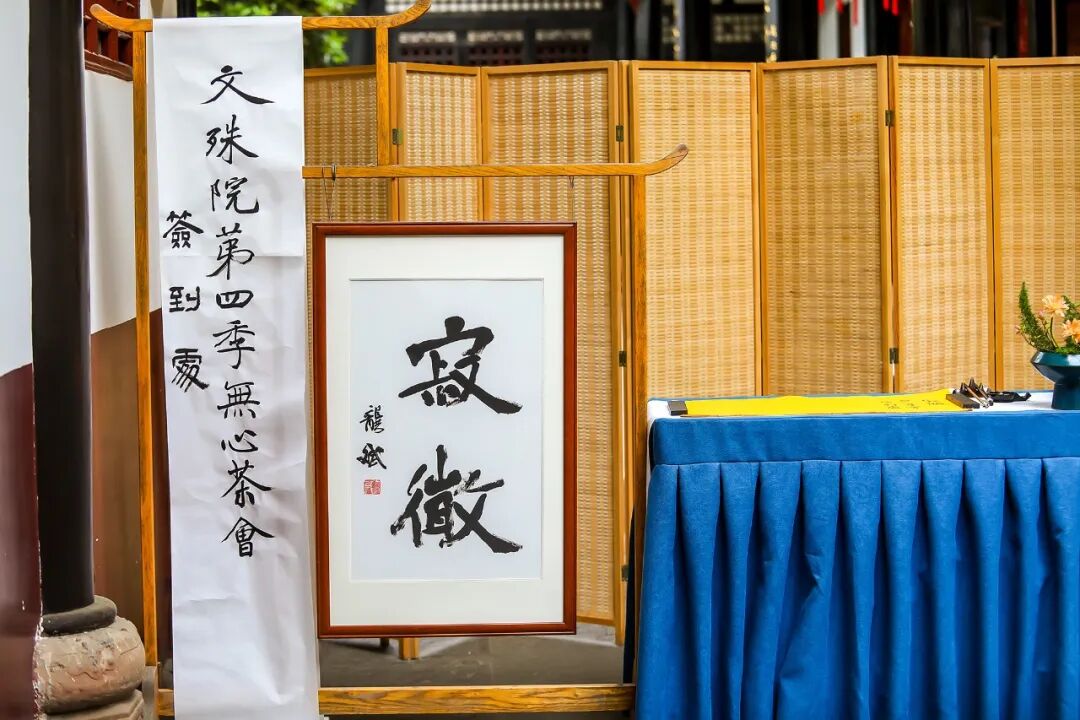 文殊院第四季無心茶會
簽到處
寂微